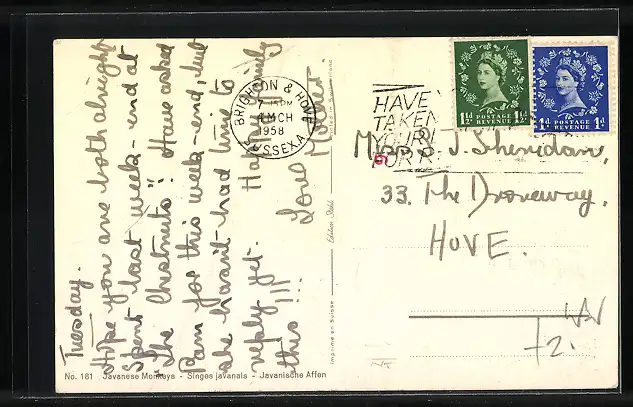 Tuesday.
Hope you are both alright
Spent last week-end at
"The Chestnuts"! Have asked
Pam for this week-end, but
she hasn't had time to
reply yet. Hap family
this!!! Love Mother.
No. 181 Javanese Monkeys - Singes javanais - Javanische Affen
Imprimé en Suisse
Edition Stehli
BRIGHTON & HOVE
7-15PM
4 MCH
1958
SUSSEX.A
HAVE
TAKEN
YOUR
FOR
1½d POSTAGE REVENUE 1½d
1d POSTAGE REVENUE 1d
J. Sheridan,
33. The Droveway,
HOVE.